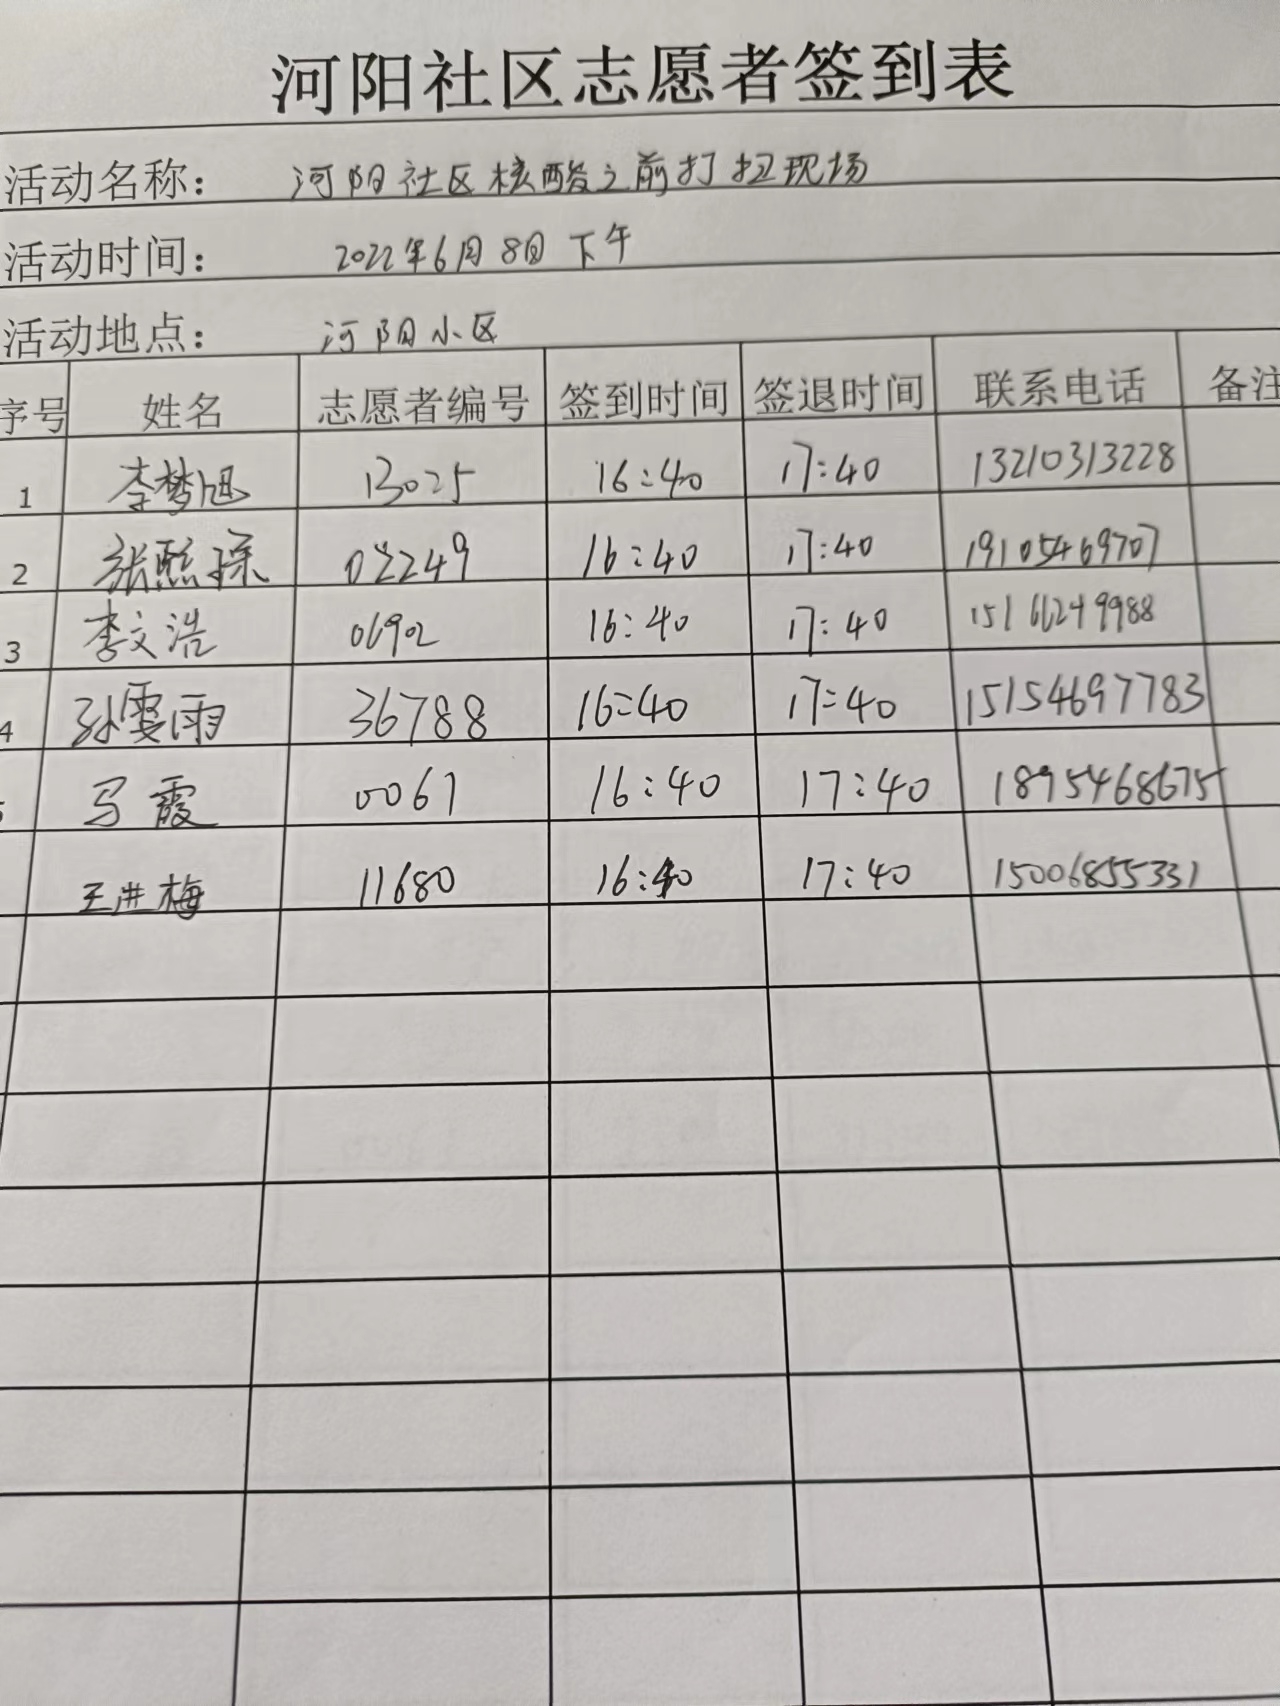 河阳社区志愿者签到表
活动名称： 河阳社区核酸之前打扫现场
活动时间： 2022年6月8日下午
活动地点： 河阳小区
序号 姓名 志愿者编号 签到时间 签退时间 联系电话 备注
1 李梦旭 13025 16:40 17:40 13210313228
2 张熙琛 02249 16:40 17:40 19105469707
3 李文浩 06902 16:40 17:40 15166249988
4 孙雯雨 36788 16:40 17:40 15154697783
马霞 0067 16:40 17:40 1895468675
王进梅 11680 16:40 17:40 15006855331